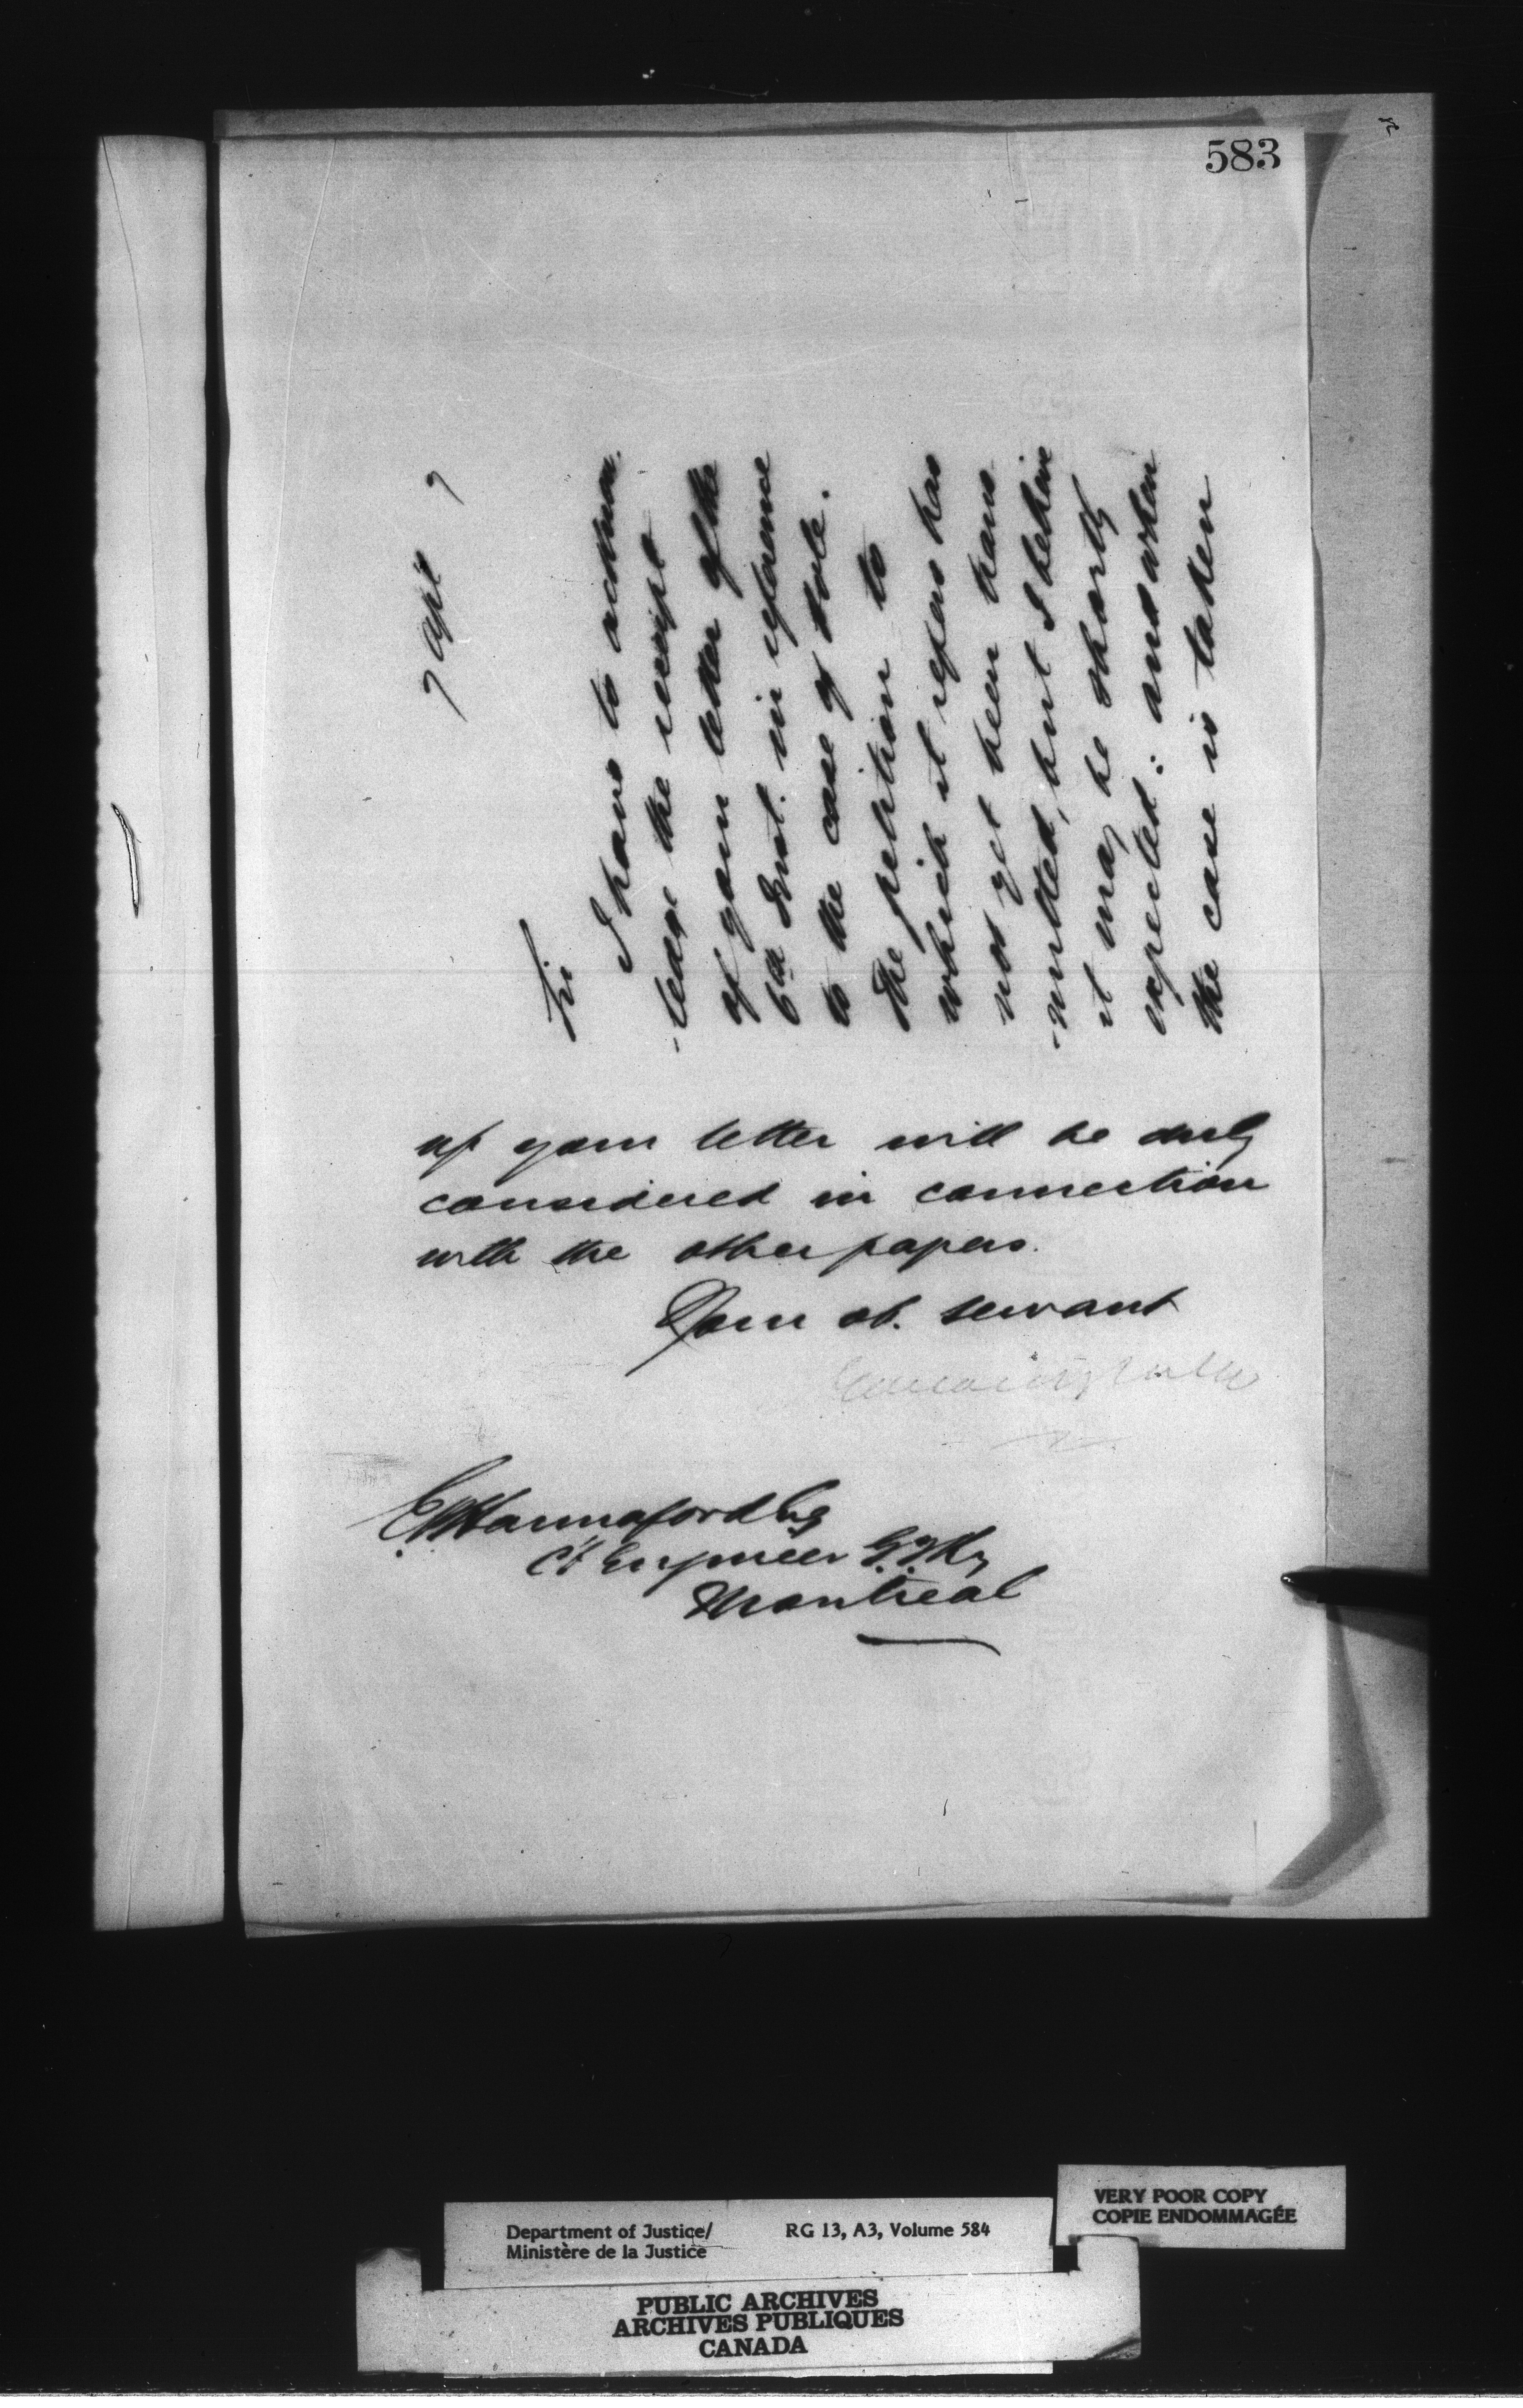 583
7 Apl 7
Sir
I have to acknow
-ledge the receipt
of your letter of the
6th Inst. in reference
to the case of
The petition to
which it refers has
not yet been trans
-mitted, but I believe
it may be shortly
expected: and when
the case is taken
up your letter will be duly
considered in connection
with the other papers.
Your ob. servant
E P Hannaford Esq
Cf Engineer G.T.Ry
Montreal
Department of Justice/
Ministère de la Justice
RG 13, A3, Volume 584
VERY POOR COPY
COPIE ENDOMMAGÉE
PUBLIC ARCHIVES
ARCHIVES PUBLIQUES
CANADA